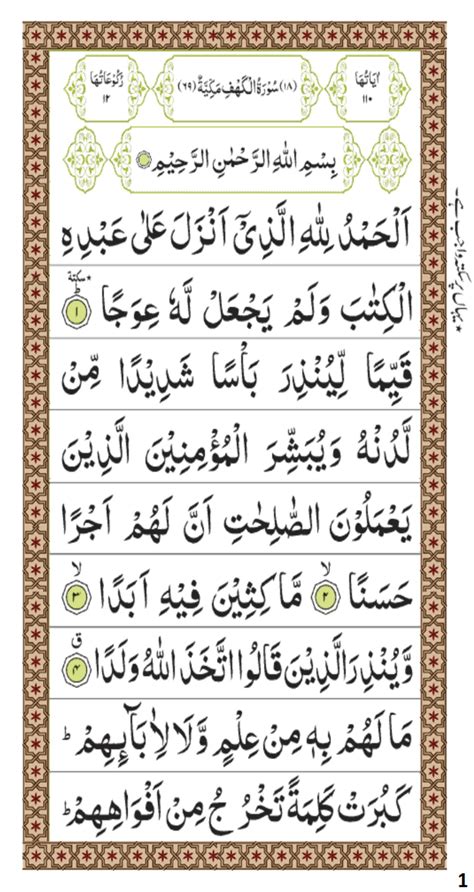 رُكُوْعَاتُهَا ١٢
(١٨) سُوْرَةُ الْكَهْفِ مَكِّيَّةٌ (٦٩)
اٰيَاتُهَا ١١٠
بِسْمِ اللّٰهِ الرَّحْمٰنِ الرَّحِيْمِ
اَلْحَمْدُ لِلّٰهِ الَّذِيْۤ اَنْزَلَ عَلٰى عَبْدِهِ
الْكِتٰبَ وَلَمْ يَجْعَلْ لَّهٗ عِوَجًا ١ؕ *سكتة
قَيِّمًا لِّيُنْذِرَ بَاْسًا شَدِيْدًا مِّنْ
لَّدُنْهُ وَيُبَشِّرَ الْمُؤْمِنِيْنَ الَّذِيْنَ
يَعْمَلُوْنَ الصّٰلِحٰتِ اَنَّ لَهُمْ اَجْرًا
حَسَنًا ۙ٢ مَّاكِثِيْنَ فِيْهِ اَبَدًا ۙ٣
وَّيُنْذِرَ الَّذِيْنَ قَالُوا اتَّخَذَ اللّٰهُ وَلَدًا ٤ ق
مَا لَهُمْ بِهٖ مِنْ عِلْمٍ وَّلَا لِاٰبَآىِٕهِمْ ؕ
كَبُرَتْ كَلِمَةً تَخْرُجُ مِنْ اَفْوَاهِهِمْ ؕ
*یہاں پر سکتہ واجب ہے۔
1